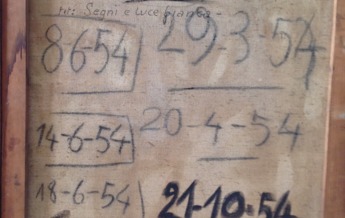 Segni e Luce bianca -
8-6-54 29-3-54
14-6-54 20-4-54
18-6-54 21-10-54